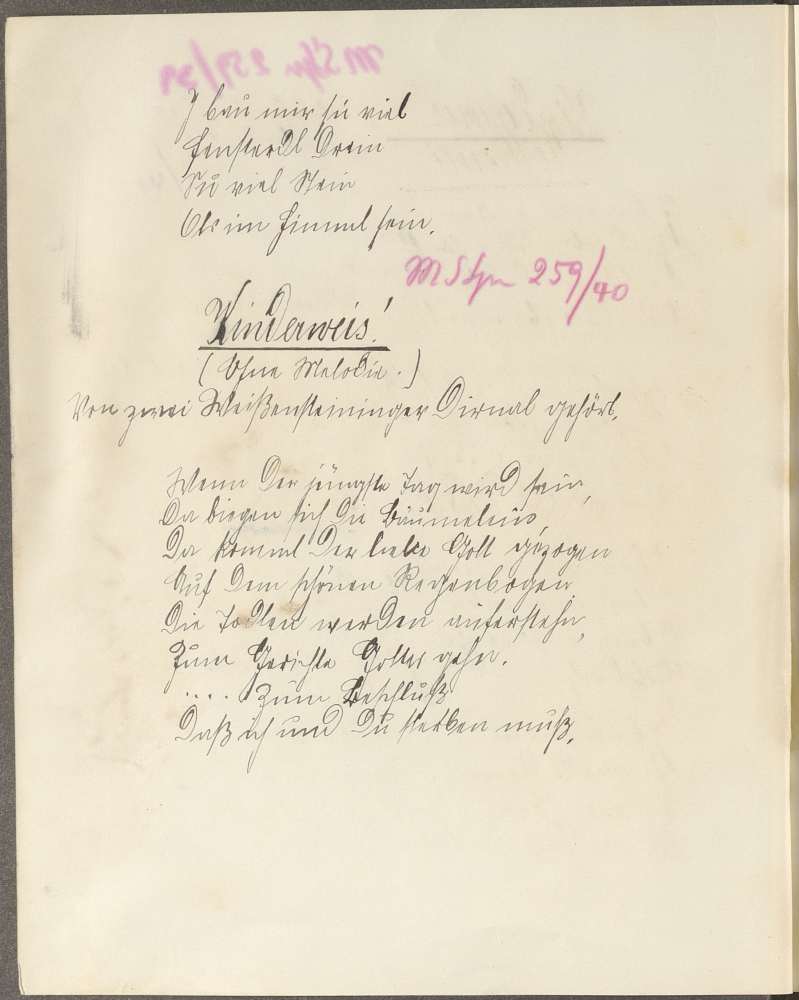 I bau mir sü viel
Fensterdl Drein
Sü viel Stein
Ols im Himml sein.
259/40
Kinderweis!
(Ohne Melodie.)
Von zwei Weißensteininger Dirnal gehört.
Wenn Der jüngste Tag wird sein,
Da biegen sich Die Bäumelein,
Da kommt Der liebe Gott gezogen
Auf Dem schönen Regenbogen.
Die Todten werden auferstehn,
Zum Gerichte Gottes gehn.
.... Zum Beschluß
Daß ich und Du sterben muß.